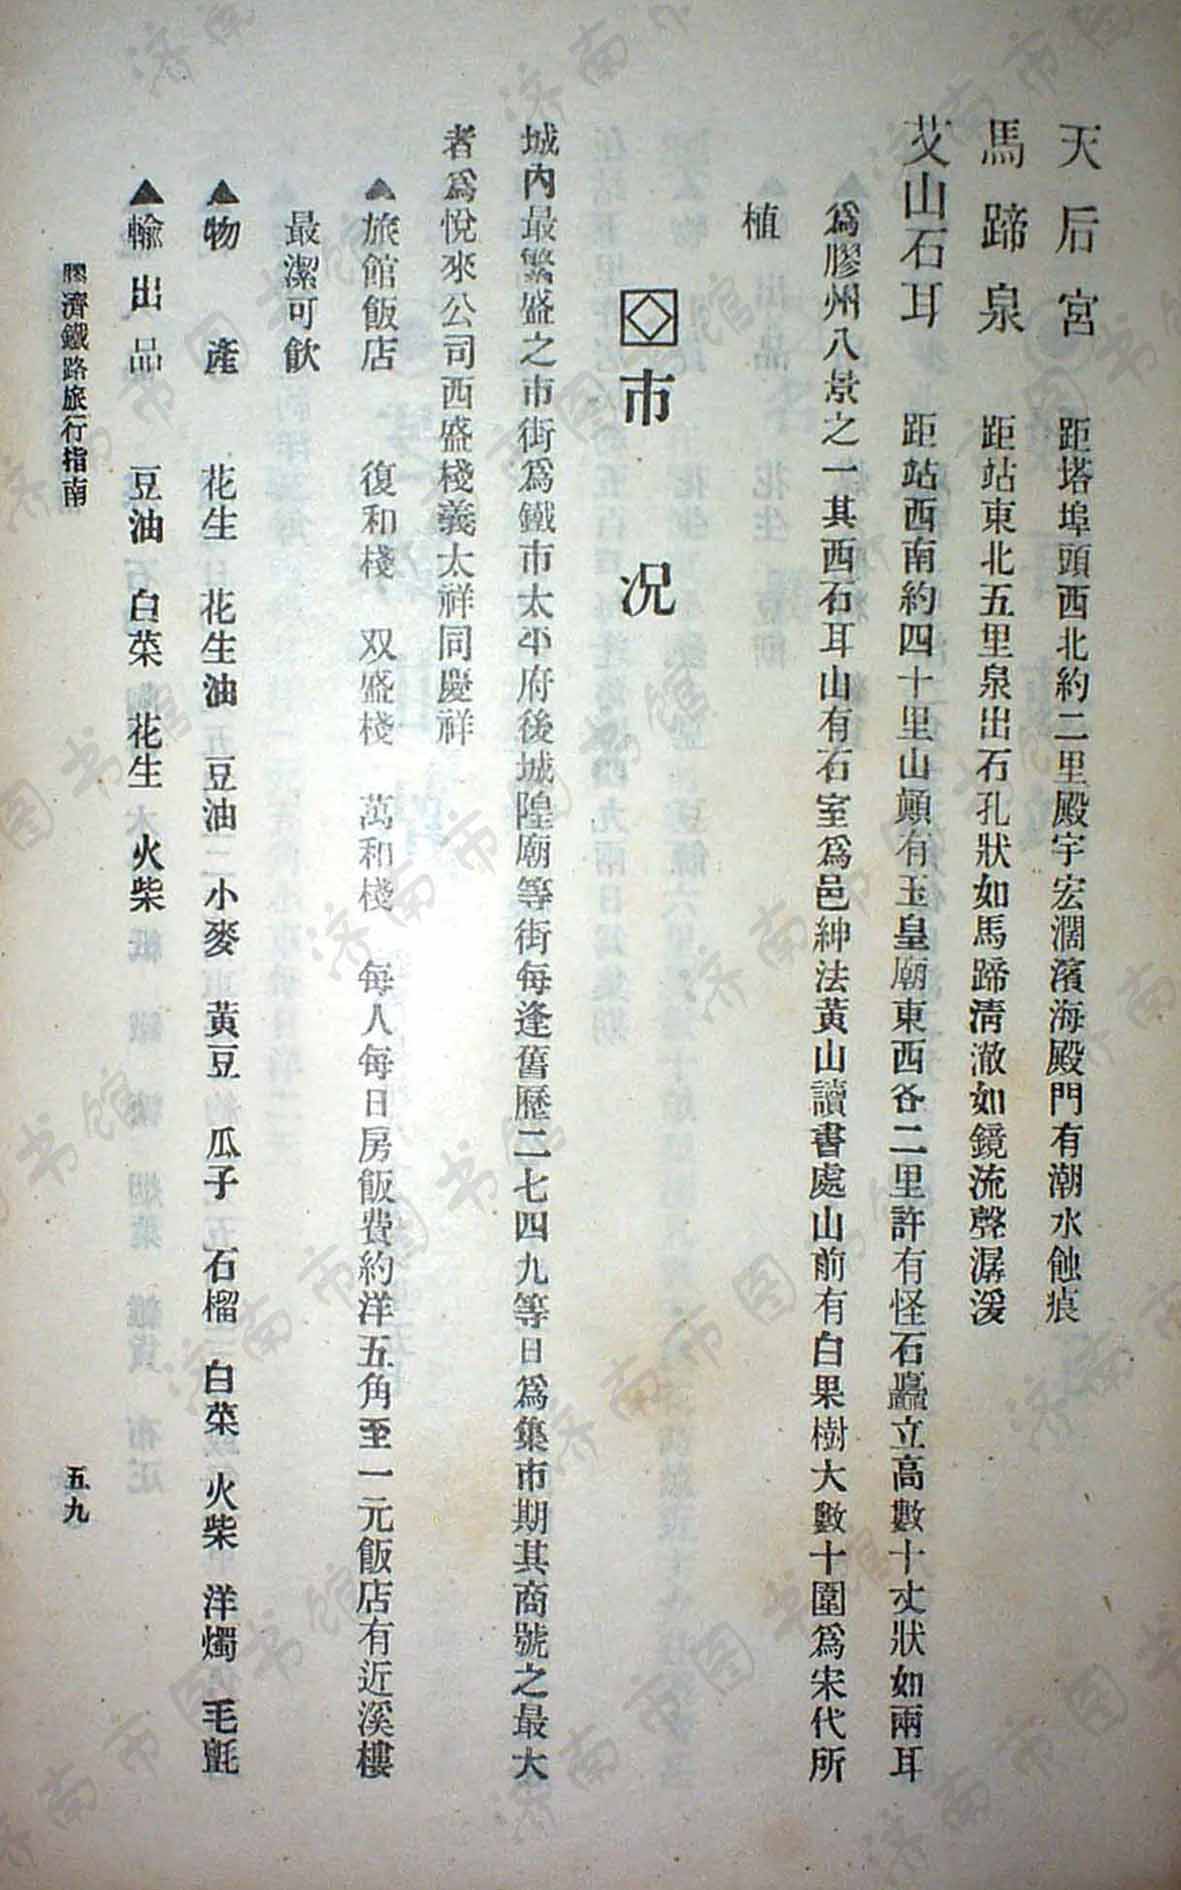 天后宮　距塔埠頭西北約二里殿宇宏濶濱海殿門有潮水蝕痕
馬蹄泉　距站東北五里泉出石孔狀如馬蹄淸澈如鏡流聲潺湲
艾山石耳　距站西南約四十里山巔有玉皇廟東西各二里許有怪石矗立高數十丈狀如兩耳
爲膠州八景之一其西石耳山有石室爲邑紳法黃山讀書處山前有白果樹大數十圍爲宋代所
植
市況
城內最繁盛之市街爲鐵市太平府後城隍廟等街每逢舊歷二七四九等日爲集市期其商號之最大
者爲悅來公司西盛棧義太祥同慶祥
▲旅館飯店　復和棧　双盛棧　萬和棧　每人每日房飯費約洋五角至一元飯店有近溪樓
最潔可飲
▲物產　花生　花生油　豆油　小麥　黃豆　瓜子　石榴　白菜　火柴　洋燭　毛氈
▲輸出品　豆油　白菜　花生　火柴
膠濟鐵路旅行指南
五九
济南市图书馆